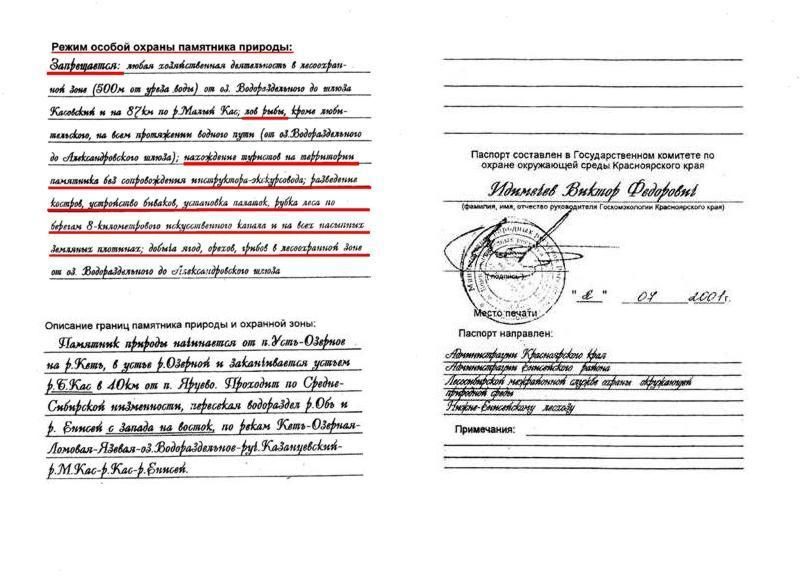 Режим особой охраны памятника природы:
Запрещается: любая хозяйственная деятельность в лесоохран-
ной зоне (500м от уреза воды) от оз. Водораздельного до шлюза
Касовский и на 87км по р.Малый Кас; лов рыбы, кроме люби-
тельского, на всем протяжении водного пути (от оз.Водораздельного
до Александровского шлюза); нахождение туристов на территории
памятника без сопровождения инструктора-экскурсовода; разведение
костров, устройство биваков, установка палаток, рубка леса по
берегам 8-километрового искусственного канала и на всех насыпных
земляных плотинах; добыча ягод, орехов, грибов в лесоохранной зоне
от оз. Водораздельного до Александровского шлюза
Описание границ памятника природы и охранной зоны:
Памятник природы начинается от п.Усть-Озерное
на р.Кеть, в устье р.Озерной и заканчивается устьем
р.Б.Кас в 40км от п. Ярцево. Проходит по Средне-
Сибирской низменности, пересекая водораздел р.Обь и
р. Енисей с запада на восток, по рекам Кеть-Озерная-
Ломовая-Язевая-оз.Водораздельное-руч.Казанцевский-
р.М.Кас-р.Кас-р.Енисей.
Паспорт составлен в Государственном комитете по
охране окружающей среды Красноярского края
Идимечев Виктор Федорович
(фамилия, имя, отчество руководителя Госкомэкологии Красноярского края)
(подпись)
"2" 07 2001г.
Место печати
Паспорт направлен:
Администрации Красноярского края
Администрации Енисейского района
Лесосибирской межрайонной службе охраны окружающей
природной среды
Нижне-Енисейскому лесхозу
Примечания: